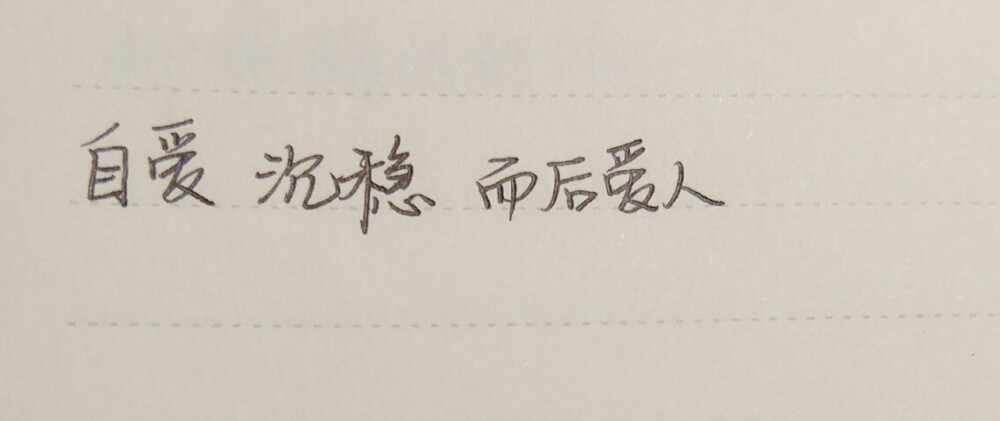 自爱 沉稳 而后爱人